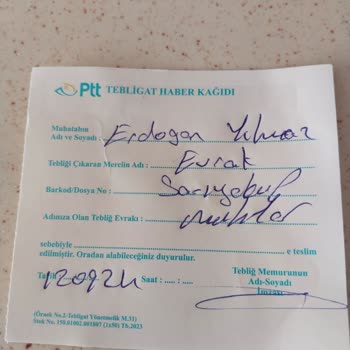 Ptt TEBLİGAT HABER KAĞIDI
Muhatabın
Adı ve Soyadı : Erdogan Yılmaz
Tebliği Çıkaran Merciin Adı : Evrak
Barkod/Dosya No : Sarıyakup
Adınıza Olan Tebliğ Evrakı : muhtar
sebebiyle ........ e teslim
edilmiştir. Oradan alabileceğiniz duyurulur.
Tarih 120924 Saat : ..... : .....
Tebliğ Memurunun
Adı-Soyadı
İmzası
(Örnek No.2-Tebligat Yönetmelik M.31)
Stok No. 150.01002.001007 (1x50) TS.2023